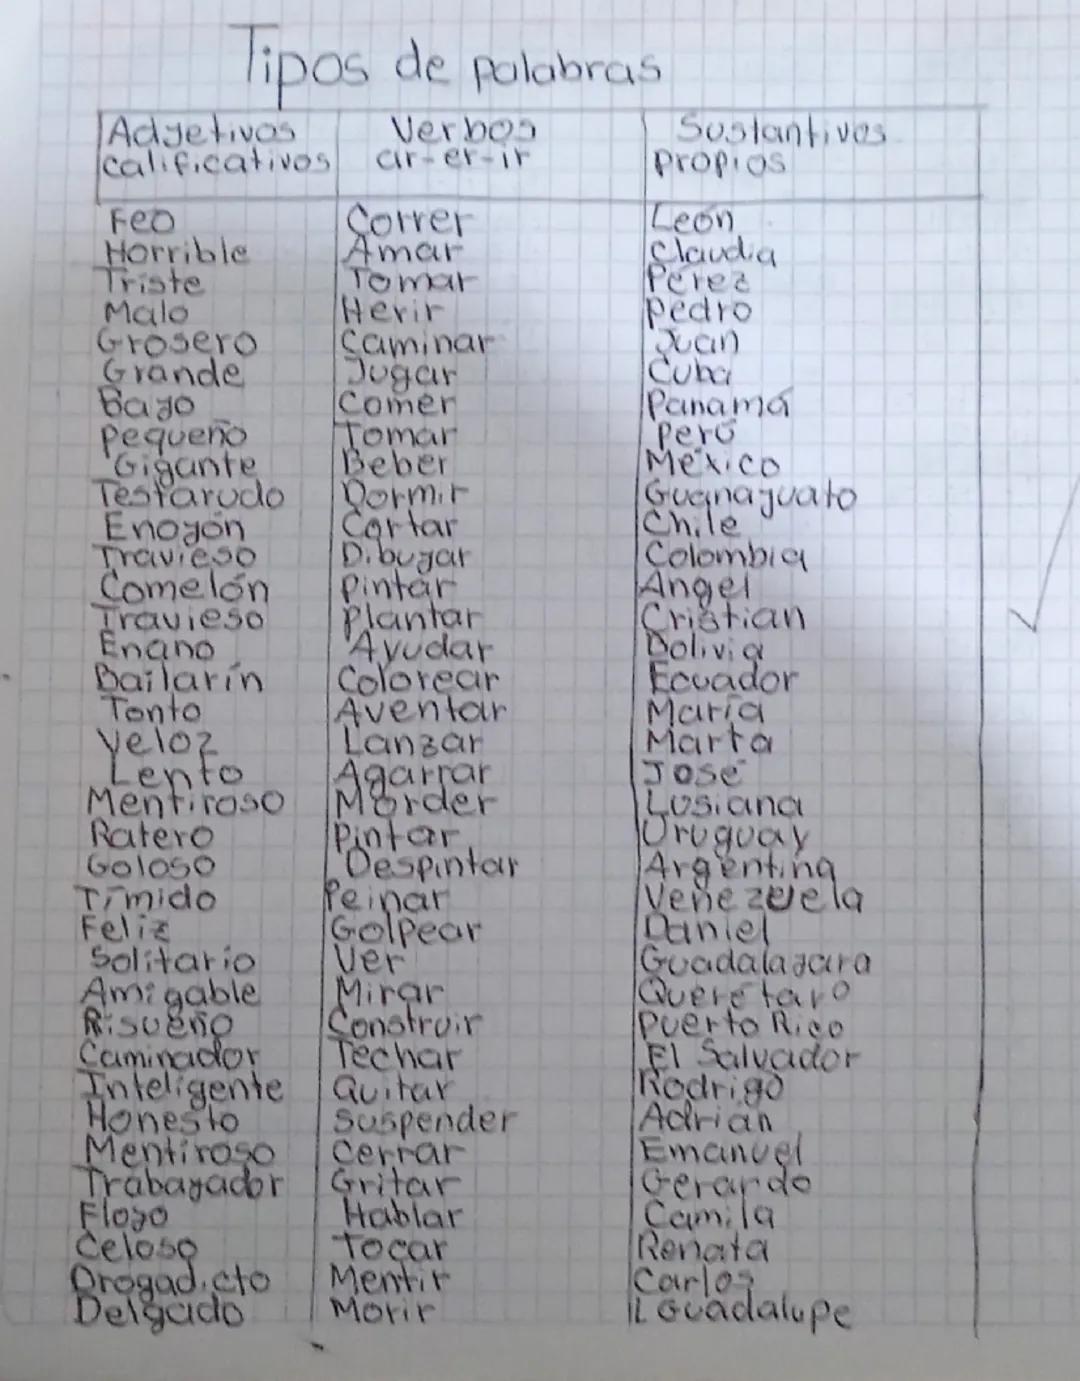 Tipos de palabras
Adjetivos Verbos Sustantivos
calificativos ar-er-ir propios
Feo Correr León
Horrible Amar Claudia
Triste Tomar Pérez
Malo Herir Pedro
Grosero Caminar Juan
Grande Jugar Cuba
Bajo Comer Panamá
Pequeño Tomar Perú
Gigante Beber México
Testarudo Dormir Guanajuato
Enojón Cortar Chile
Travieso Dibujar Colombia
Comelón Pintar Angel
Travieso Plantar Cristian
Enano Ayudar Bolivia
Bailarín Colorear Ecuador
Tonto Aventar María
Veloz Lanzar Marta
Lento Agarrar José
Mentiroso Morder Lusiana
Ratero Pintar Uruguay
Goloso Despintar Argentina
Tímido Peinar Venezuela
Feliz Golpear Daniel
Solitario Ver Guadalajara
Amigable Mirar Querétaro
Risueño Construir Puerto Rico
Caminador Techar El Salvador
Inteligente Quitar Rodrigo
Honesto Suspender Adrián
Mentiroso Cerrar Emanuel
Trabajador Gritar Gerardo
Flojo Hablar Camila
Celoso Tocar Renata
Drogadicto Mentir Carlos
Delgado Morir Guadalupe